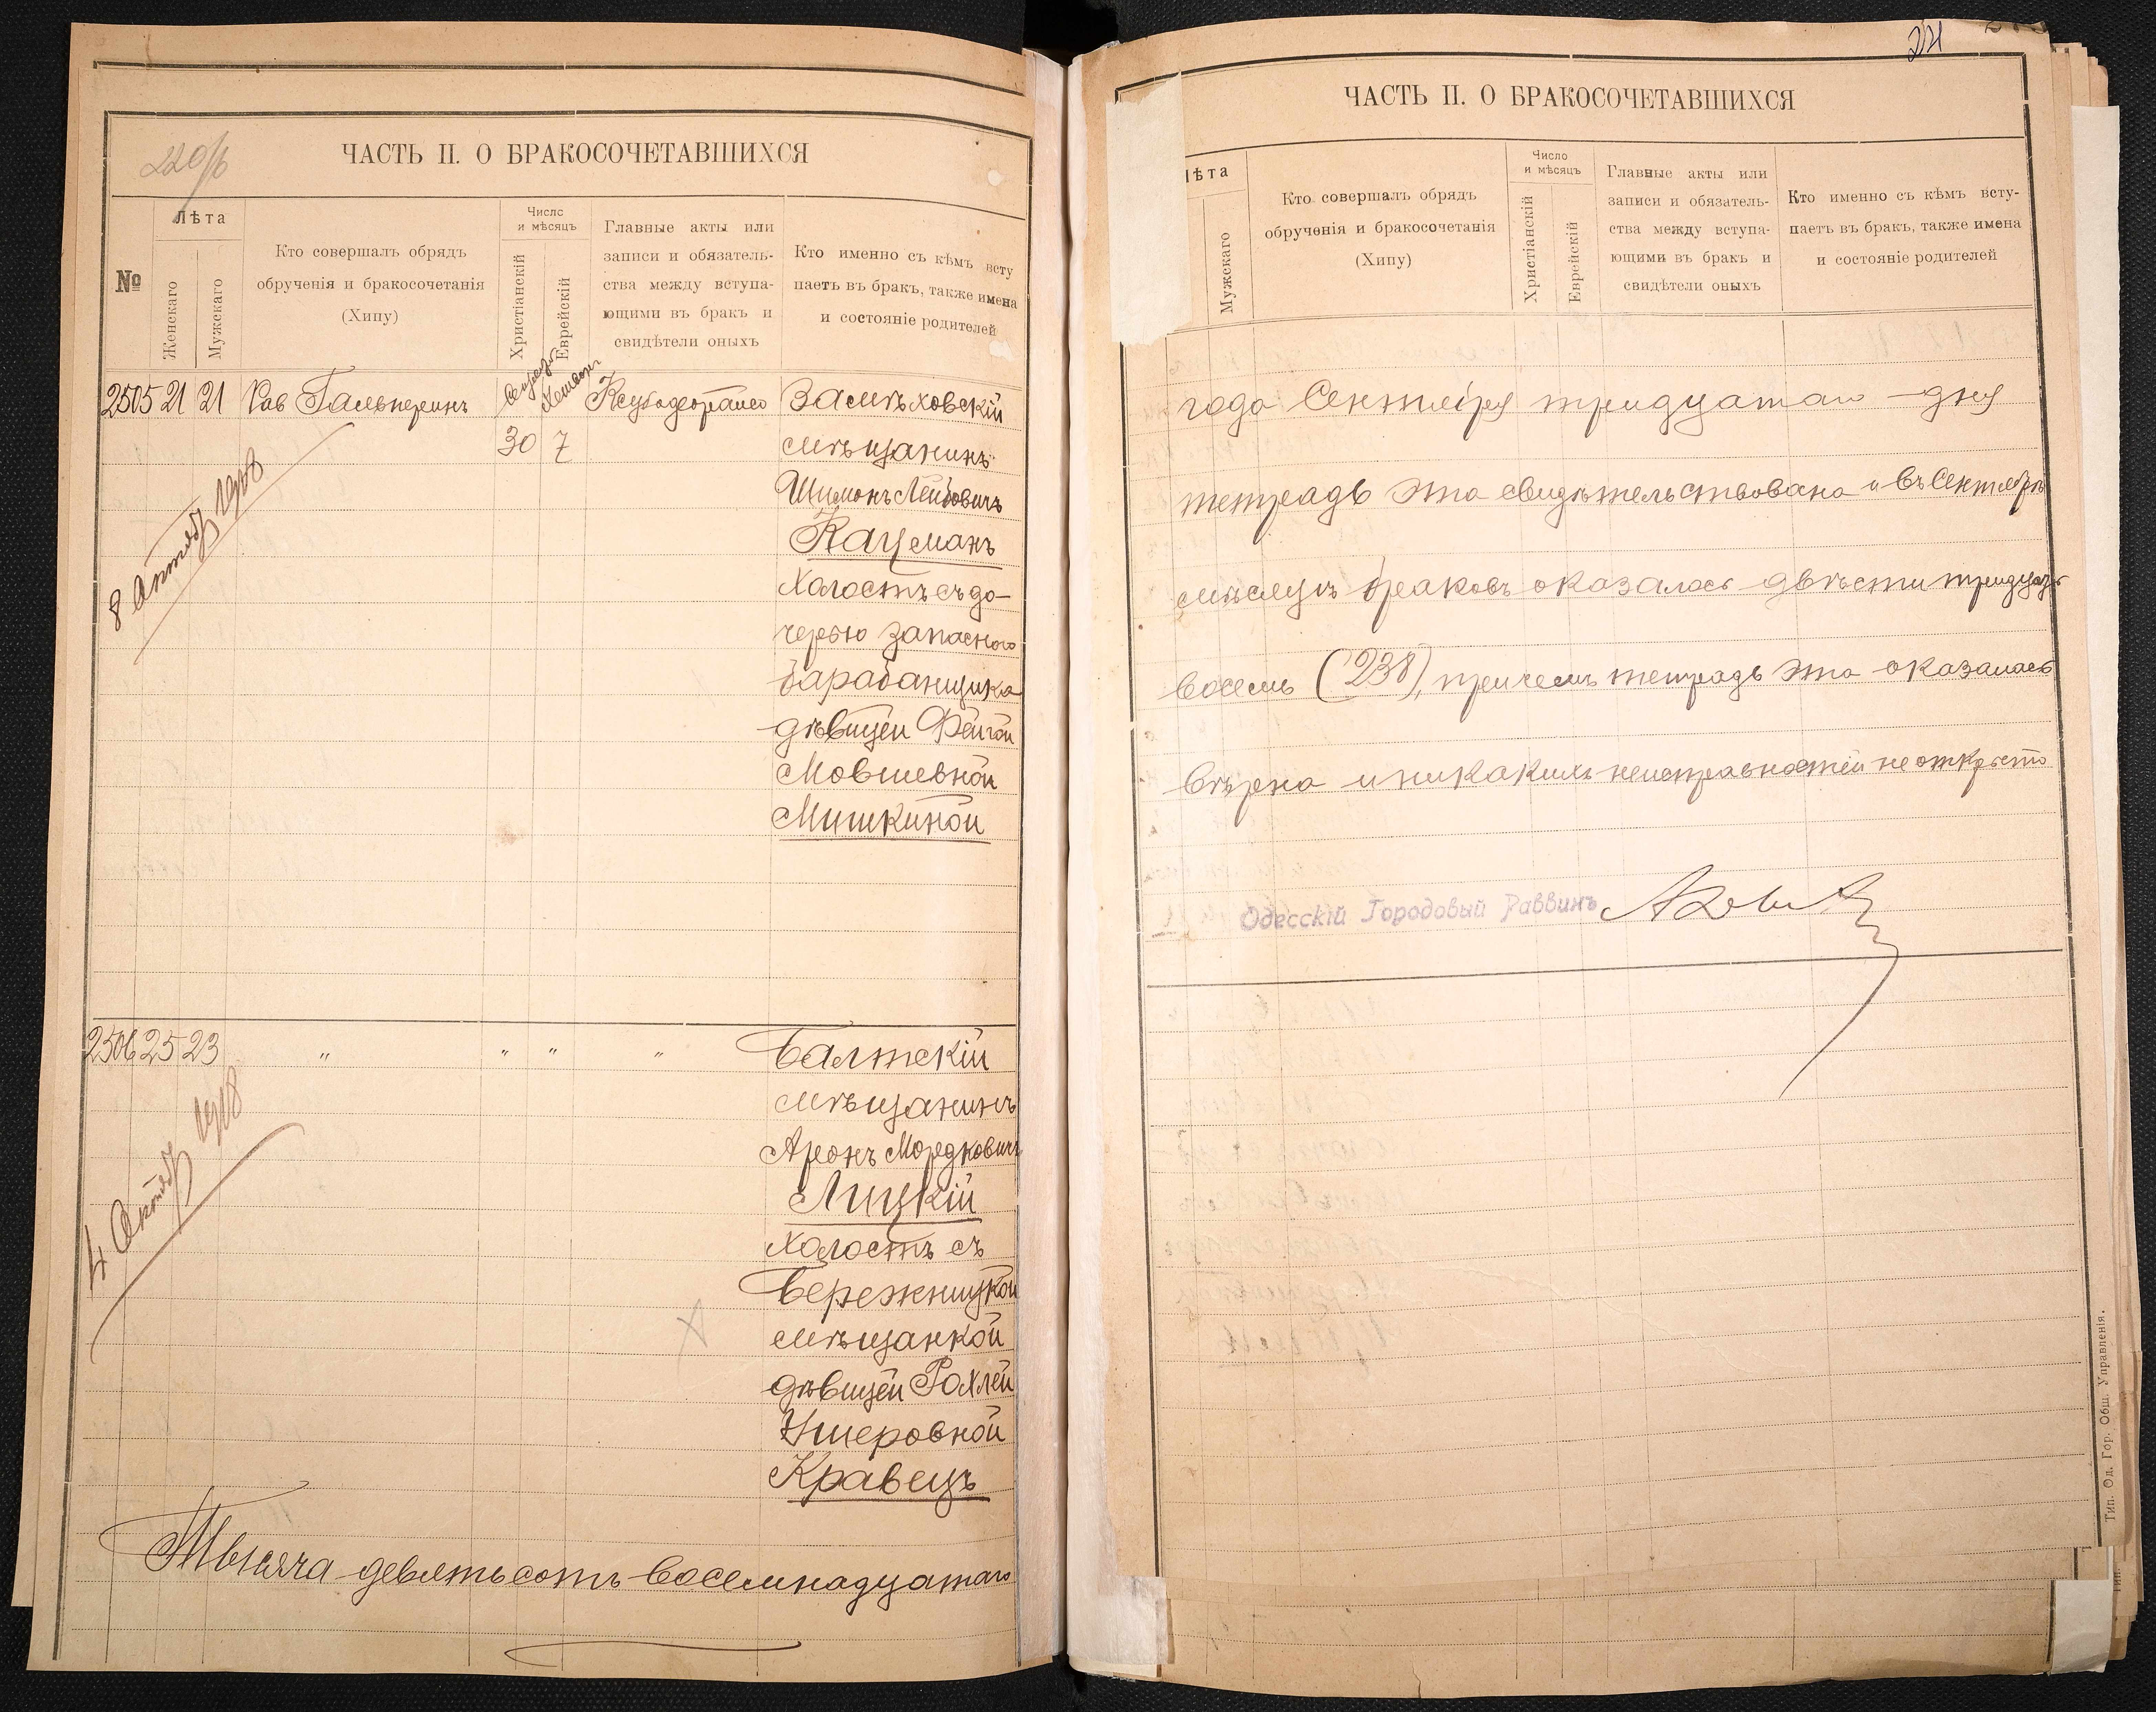 220/б
ЧАСТЬ II. О БРАКОСОЧЕТАВШИХСЯ
№
Лѣта
Женскаго
Мужскаго
Кто совершалъ обрядъ
обрученія и бракосочетанія
(Хипу)
Число
и мѣсяцъ
Христіанскій
Еврейскій
Главные акты или
записи и обязатель-
ства между вступа-
ющими въ бракъ и
свидѣтели оныхъ
Кто именно съ кѣмъ всту
паетъ въ бракъ, также имена
и состояніе родителей
2505 21 21 Рав Гальперинъ
30 7
Замѣховскій
мѣщанинъ
Шимонъ Лейбовичъ
Кацманъ
Холостъ съ до-
черью запасного
барабанщика
дѣвицей Фейгой
Мовшевной
Мишкиной
8 Октяб 1918
2506 25 23 " " " "
Балтскій
мѣщанинъ
Аронъ Мордковичъ
Лицкій
Холостъ съ
Бережницкой
мѣщанкой
дѣвицей Рохлей
Ушеровной
Кравецъ
4 Октяб 1918
Тысяча девятьсотъ восемнадцатаго
221
ЧАСТЬ II. О БРАКОСОЧЕТАВШИХСЯ
ѣта
Мужскаго
Кто совершалъ обрядъ
обрученія и бракосочетанія
(Хипу)
Число
и мѣсяцъ
Христіанскій
Еврейскій
Главные акты или
записи и обязатель-
ства между вступа-
ющими въ бракъ и
свидѣтели оныхъ
Кто именно съ кѣмъ всту-
паетъ въ бракъ, также имена
и состояніе родителей
года Сентября тридцатаго дня
тетрадь эта свидѣтельствована и въ Сентябрѣ
мѣсяцѣ браковъ оказалось двѣсти тридцать
восемь (238), причемъ тетрадь эта оказалась
вѣрна и никакихъ неисправностей не открыто
Одесскій Городовый Раввинъ
Тип. Од. Гор. Общ. Управленія.